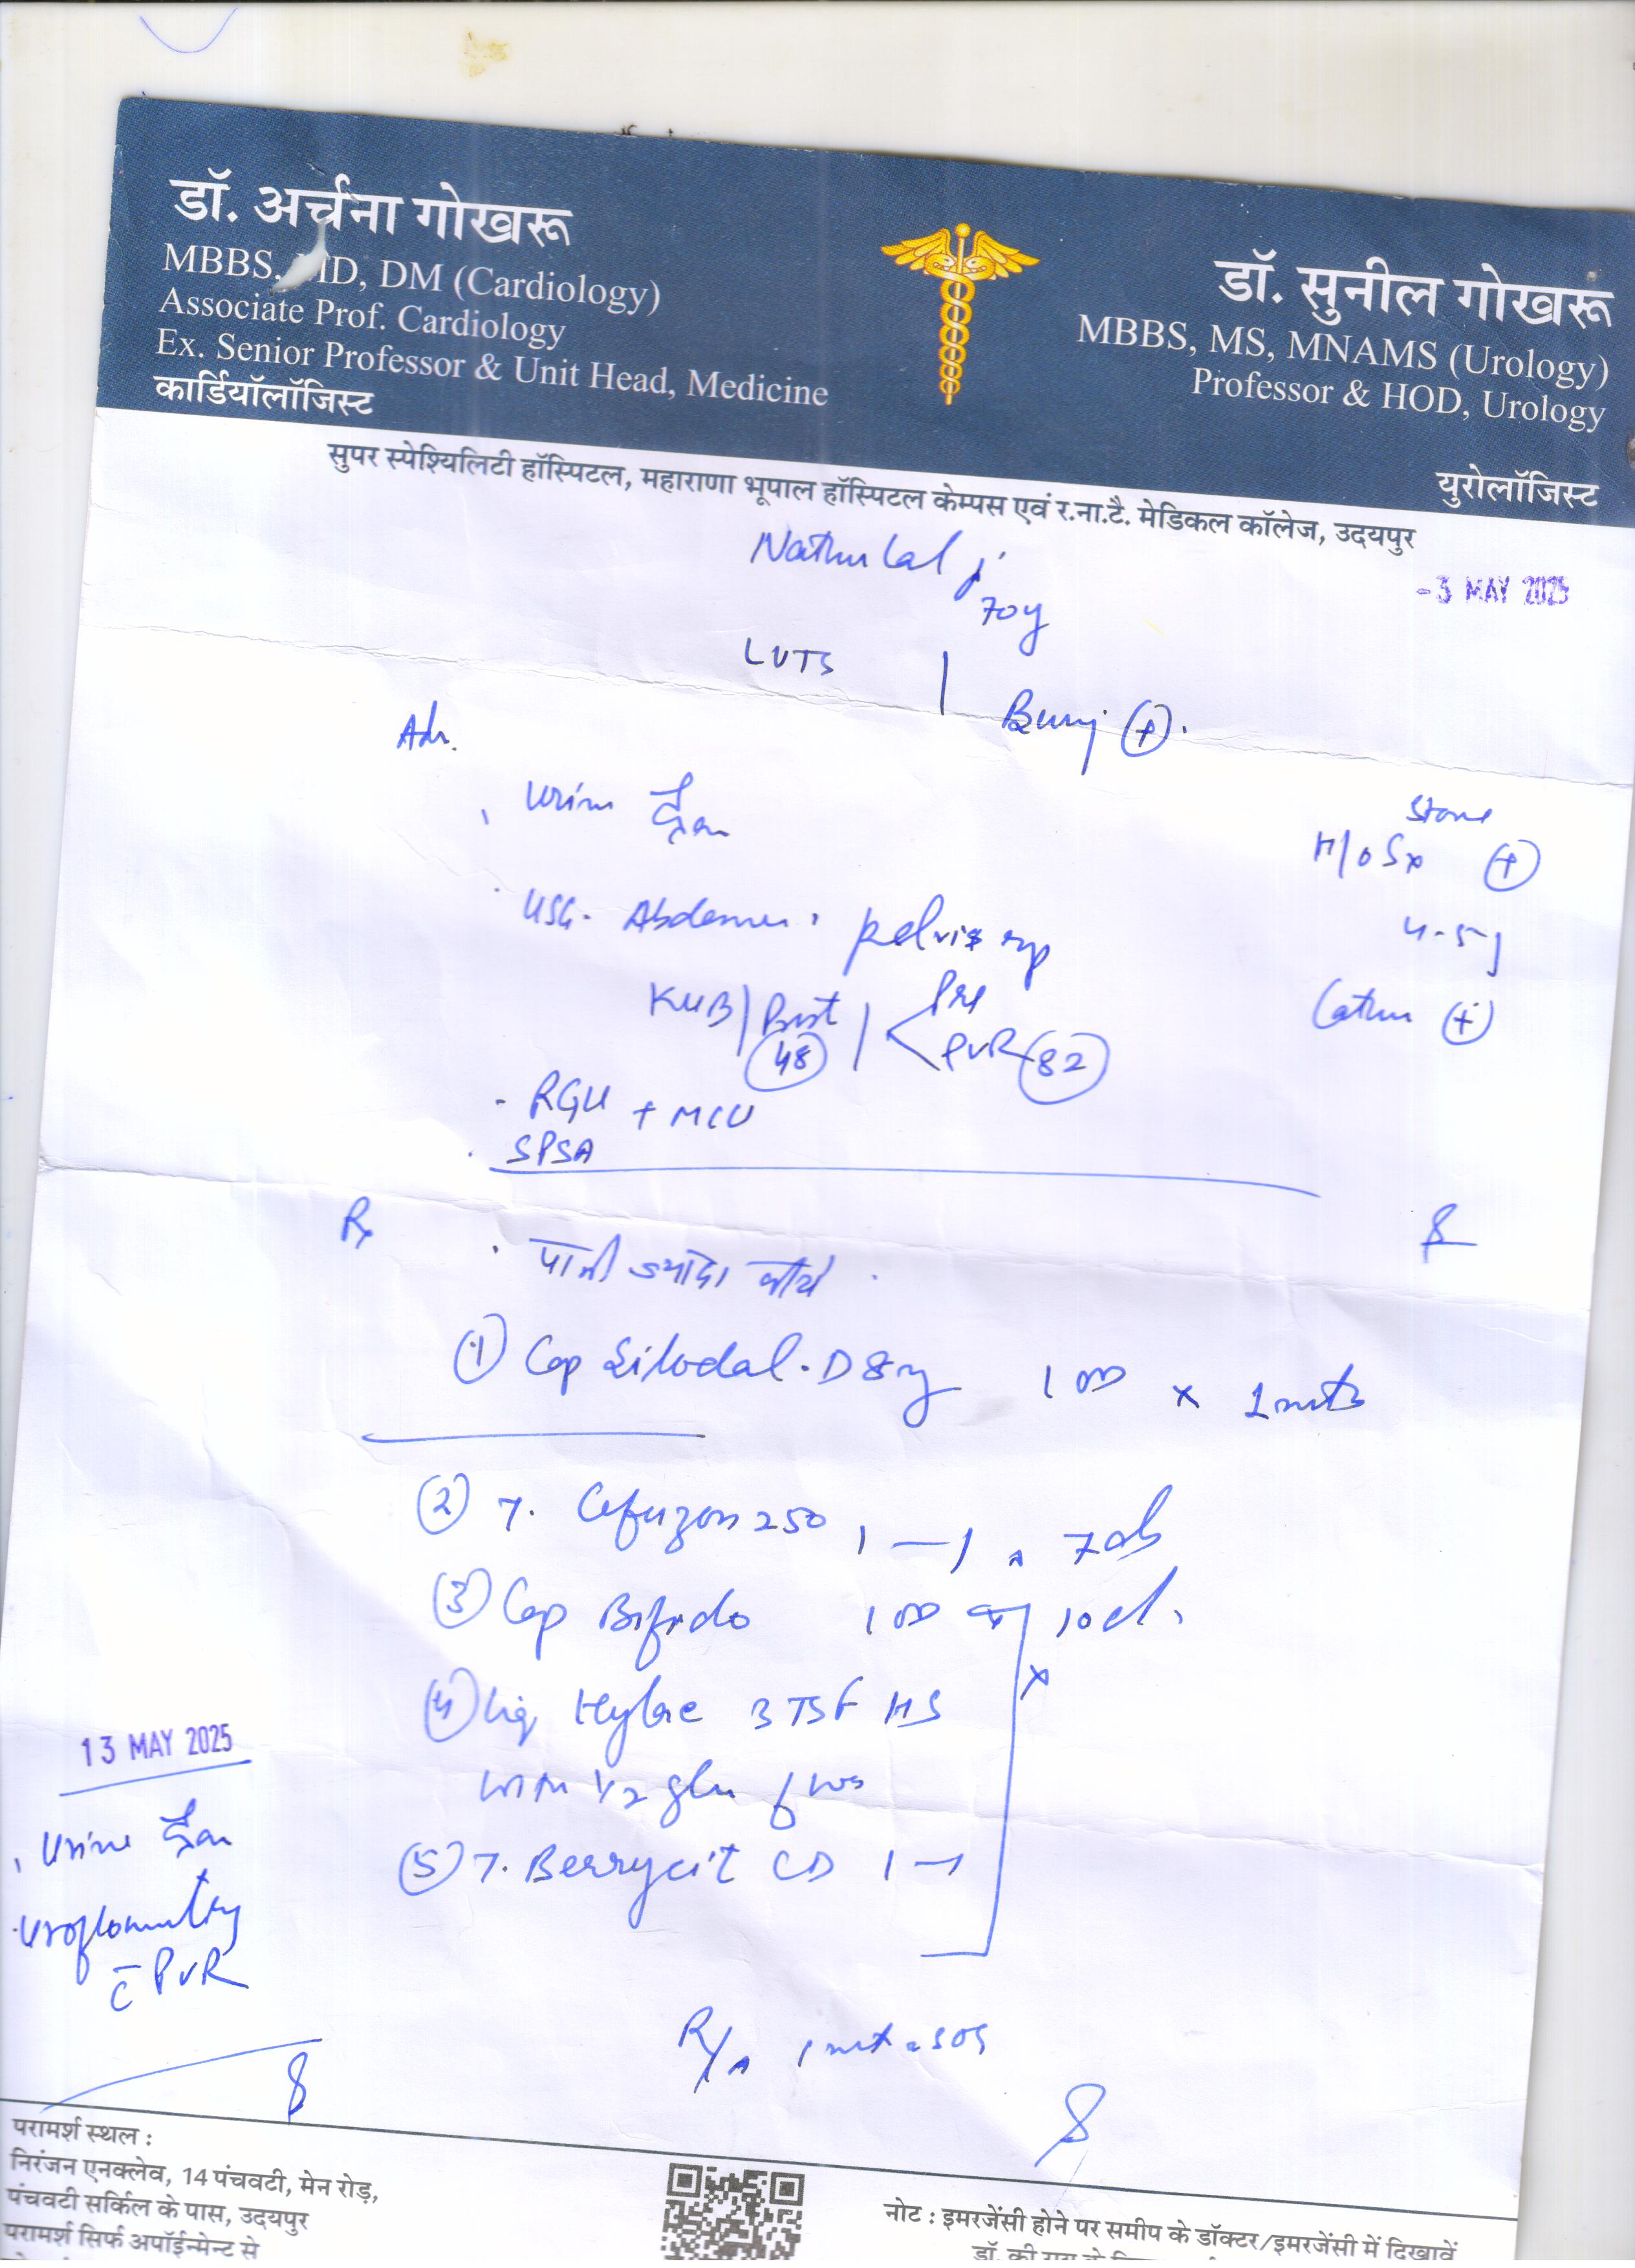 डॉ. अर्चना गोखरू
MBBS, MD, DM (Cardiology)
Associate Prof. Cardiology
Ex. Senior Professor & Unit Head, Medicine
कार्डियॉलॉजिस्ट
डॉ. सुनील गोखरू
MBBS, MS, MNAMS (Urology)
Professor & HOD, Urology
युरोलॉजिस्ट
सुपर स्पेश्यिलिटी हॉस्पिटल, महाराणा भूपाल हॉस्पिटल केम्पस एवं र.ना.टै. मेडिकल कॉलेज, उदयपुर
Nathu Lal ji
-3 MAY 2025
70y
LUTS
Adv.
Urine
Stone
H/o Sx (+)
USG. Abdomen. pelvis
4-5y
KUB | Prst | Pre
48 PVR 82
(+)
- RGU + MCU
SPSA
Rx
पानी ज्यादा
① Cap Silodal-D 8mg 1 OD x 1
② T. Cefuzon 250 1—1 x 7
③ Cap Bifido 1 OD x 10d
④ Liq 3 TSF HS
with 1/2
⑤ T. Berrycit CD 1—1
13 MAY 2025
Urine
Uroflowmetry
c̄ PVR
SOS
परामर्श स्थल :
निरंजन एनक्लेव, 14 पंचवटी, मेन रोड़,
पंचवटी सर्किल के पास, उदयपुर
परामर्श सिर्फ अपॉईन्मेन्ट से
नोट : इमरजेंसी होने पर समीप के डॉक्टर/इमरजेंसी में दिखावें